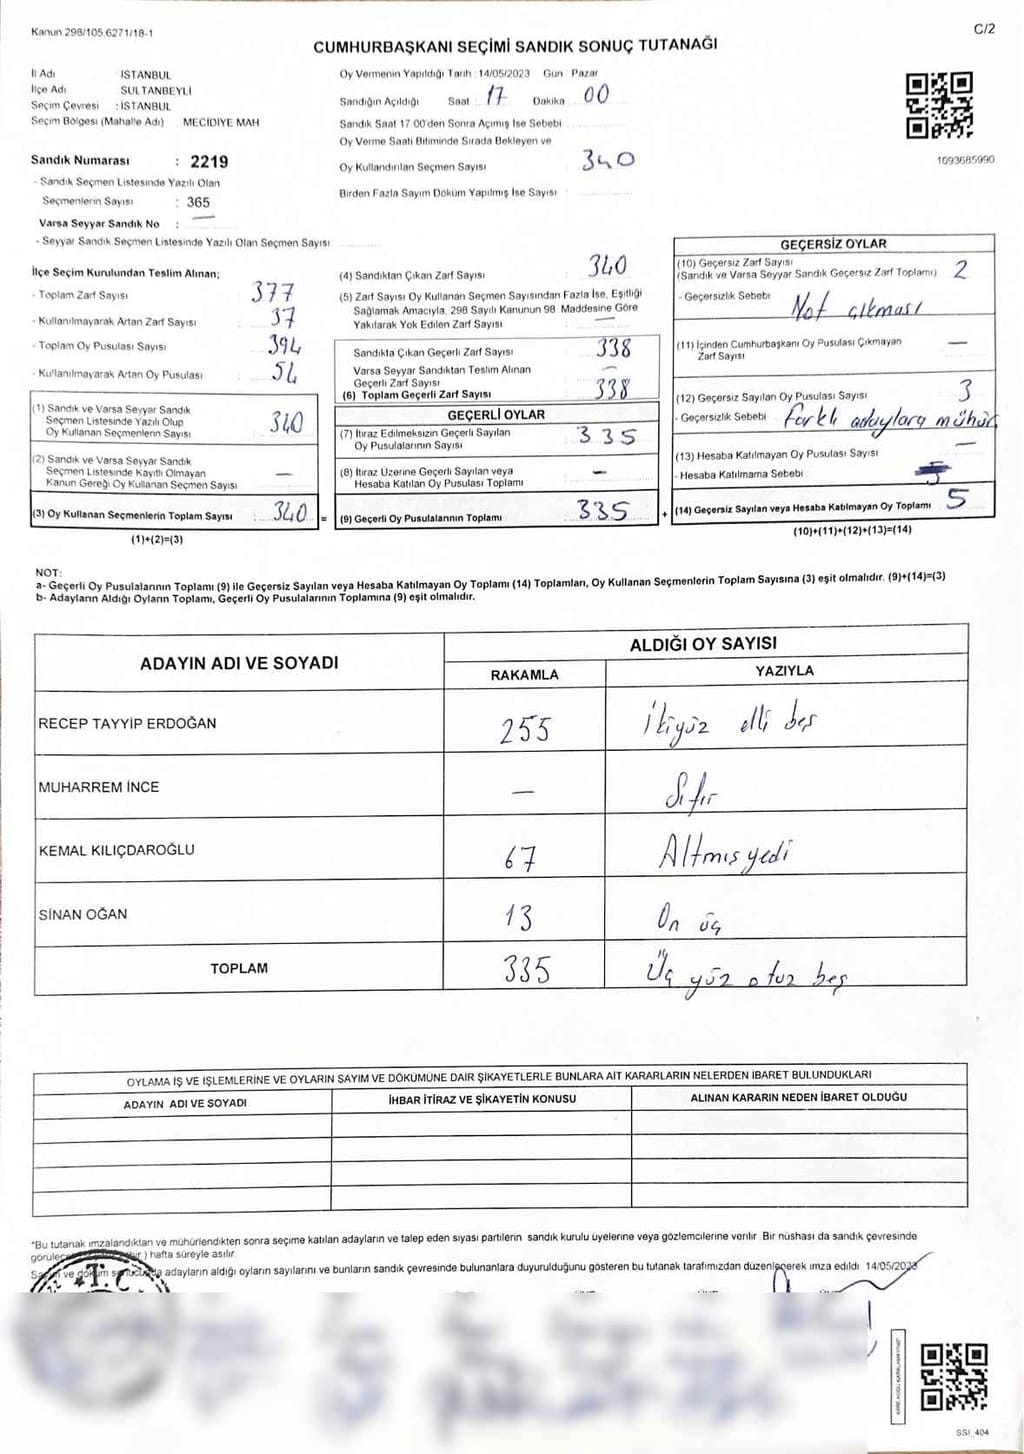 Kanun 298/105,6271/18-1
C/2
CUMHURBAŞKANI SEÇİMİ SANDIK SONUÇ TUTANAĞI
İl Adı İSTANBUL
İlçe Adı SULTANBEYLİ
Seçim Çevresi : İSTANBUL
Seçim Bölgesi (Mahalle Adı) MECİDİYE MAH
Sandık Numarası : 2219
- Sandık Seçmen Listesinde Yazılı Olan
Seçmenlerin Sayısı : 365
Varsa Seyyar Sandık No : —
- Seyyar Sandık Seçmen Listesinde Yazılı Olan Seçmen Sayısı
Oy Vermenin Yapıldığı Tarih 14/05/2023 Gün Pazar
Sandığın Açıldığı Saat : 17 Dakika 00
Sandık Saat 17 00'den Sonra Açımış İse Sebebi
Oy Verme Saati Bitiminde Sırada Bekleyen ve
Oy Kullandırılan Seçmen Sayısı 340
Birden Fazla Sayım Döküm Yapılmış İse Sayısı
1093685990
İlçe Seçim Kurulundan Teslim Alınan;
- Toplam Zarf Sayısı 377
- Kullanılmayarak Artan Zarf Sayısı 37
- Toplam Oy Pusulası Sayısı 394
- Kullanılmayarak Artan Oy Pusulası 54
(1) Sandık ve Varsa Seyyar Sandık
Seçmen Listesinde Yazılı Olup
Oy Kullanan Seçmenlerin Sayısı 340
(2) Sandık ve Varsa Seyyar Sandık
Seçmen Listesinde Kayıtlı Olmayan
Kanun Gereği Oy Kullanan Seçmen Sayısı —
(3) Oy Kullanan Seçmenlerin Toplam Sayısı : 340 =
(1)+(2)=(3)
(4) Sandıktan Çıkan Zarf Sayısı 340
(5) Zarf Sayısı Oy Kullanan Seçmen Sayısından Fazla İse, Eşitliği
Sağlamak Amacıyla, 298 Sayılı Kanunun 98 Maddesine Göre
Yakılarak Yok Edilen Zarf Sayısı —
Sandıkta Çıkan Geçerli Zarf Sayısı 338
Varsa Seyyar Sandıktan Teslim Alınan
Geçerli Zarf Sayısı —
(6) Toplam Geçerli Zarf Sayısı 338
GEÇERLİ OYLAR
(7) İtiraz Edilmeksizin Geçerli Sayılan
Oy Pusulalarının Sayısı 335
(8) İtiraz Üzerine Geçerli Sayılan veya
Hesaba Katılan Oy Pusulası Toplamı —
(9) Geçerli Oy Pusulalarının Toplamı : 335 +
GEÇERSİZ OYLAR
(10) Geçersiz Zarf Sayısı
(Sandık ve Varsa Seyyar Sandık Geçersiz Zarf Toplamı) 2
- Geçersizlik Sebebi Not çıkması
(11) İçinden Cumhurbaşkanı Oy Pusulası Çıkmayan
Zarf Sayısı —
(12) Geçersiz Sayılan Oy Pusulası Sayısı 3
- Geçersizlik Sebebi Farklı adaylara mühür
(13) Hesaba Katılmayan Oy Pusulası Sayısı —
- Hesaba Katılmama Sebebi
(14) Geçersiz Sayılan veya Hesaba Katılmayan Oy Toplamı 5
(10)+(11)+(12)+(13)=(14)
NOT:
a- Geçerli Oy Pusulalarının Toplamı (9) ile Geçersiz Sayılan veya Hesaba Katılmayan Oy Toplamı (14) Toplamları, Oy Kullanan Seçmenlerin Toplam Sayısına (3) eşit olmalıdır. (9)+(14)=(3)
b- Adayların Aldığı Oyların Toplamı, Geçerli Oy Pusulalarının Toplamına (9) eşit olmalıdır.
ADAYIN ADI VE SOYADI
ALDIĞI OY SAYISI
RAKAMLA YAZIYLA
RECEP TAYYİP ERDOĞAN 255 İkiyüz elli beş
MUHARREM İNCE — Sıfır
KEMAL KILIÇDAROĞLU 67 Altmış yedi
SİNAN OĞAN 13 On üç
TOPLAM 335 Üç yüz otuz beş
OYLAMA İŞ VE İŞLEMLERİNE VE OYLARIN SAYIM VE DÖKÜMÜNE DAİR ŞİKAYETLERLE BUNLARA AİT KARARLARIN NELERDEN İBARET BULUNDUKLARI
ADAYIN ADI VE SOYADI İHBAR İTİRAZ VE ŞİKAYETİN KONUSU ALINAN KARARIN NEDEN İBARET OLDUĞU
*Bu tutanak imzalandıktan ve mühürlendikten sonra seçime katılan adayların ve talep eden siyasi partilerin sandık kurulu üyelerine veya gözlemcilerine verilir Bir nüshası da sandık çevresinde
) hafta süreyle asılır
ve döküm adayların aldığı oyların sayılarını ve bunların sandık çevresinde bulunanlara duyurulduğunu gösteren bu tutanak tarafımızdan düzenlenerek imza edildi 14/05/2023
T.C.
SSI_404